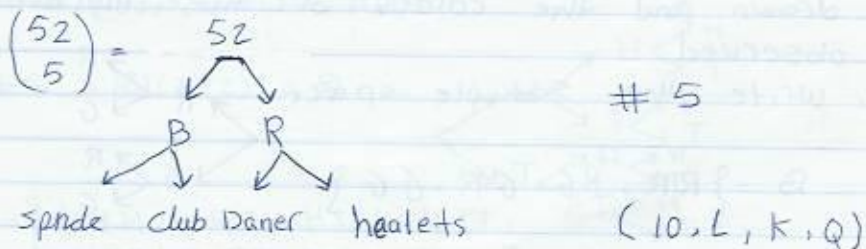 (52
5) = 52
# 5
B R
spade club Daner healets (10, L, K, Q)